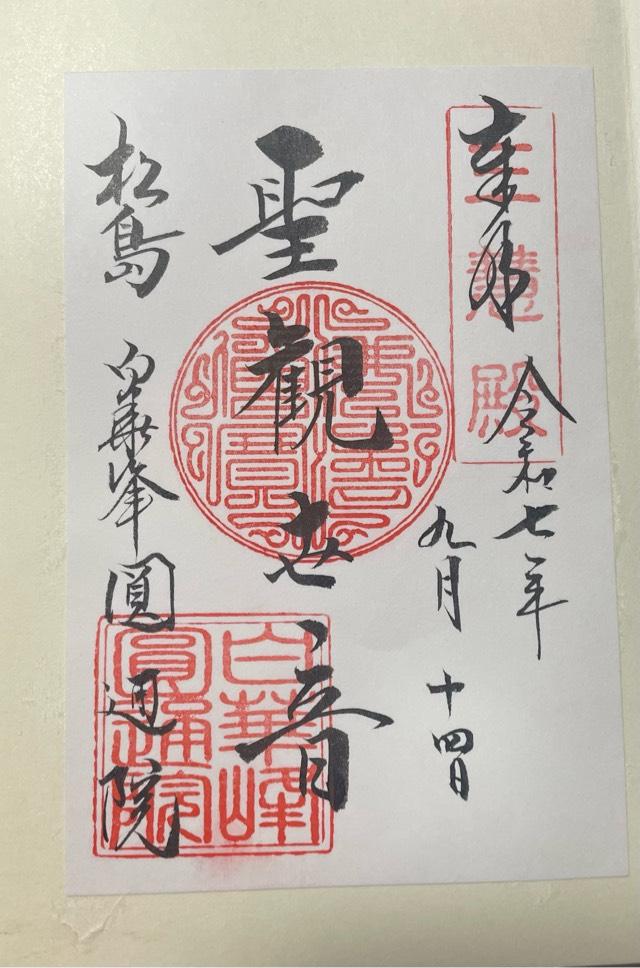 奉拝
三慧殿
令和七年
九月
十四日
聖觀世音
松島
白華峰圓通院
白華峰
圓通院